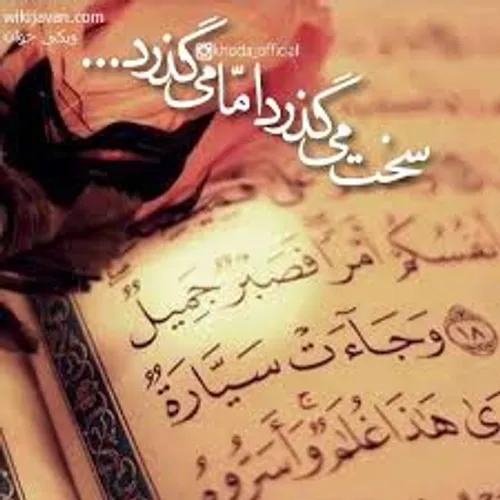 wikijavan.com
ویکی جوان
khoda_official
سخت می‌گذرد امّا می‌گذرد...
أَنفُسُكُمْ أَمْرًا فَصَبْرٌ جَمِيلٌ
١٨ وَجَآءَتْ سَيَّارَةٌ
هَٰذَا غُلَٰمٌ وَأَسَرُّوهُ